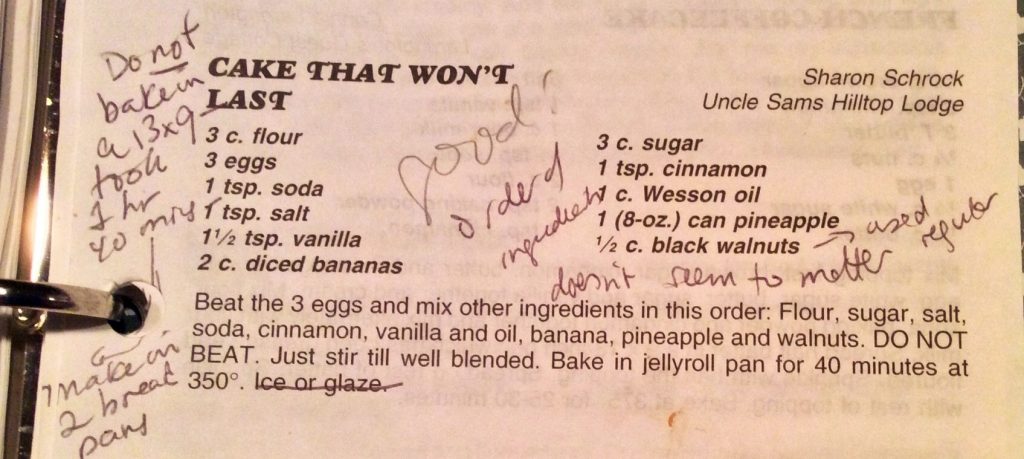 Do not
bake in
a 13x9
took
1 hr
40 mins
CAKE THAT WON'T
LAST
Good!
Sharon Schrock
Uncle Sams Hilltop Lodge
3 c. flour
3 eggs
1 tsp. soda
1 tsp. salt
1½ tsp. vanilla
2 c. diced bananas
3 c. sugar
1 tsp. cinnamon
1 c. Wesson oil
1 (8-oz.) can pineapple
½ c. black walnuts → used
regular
order of
ingredients
doesn't seem to matter
Beat the 3 eggs and mix other ingredients in this order: Flour, sugar, salt,
soda, cinnamon, vanilla and oil, banana, pineapple and walnuts. DO NOT
BEAT. Just stir till well blended. Bake in jellyroll pan for 40 minutes at
350°. Ice or glaze.
make in
2 bread
pans